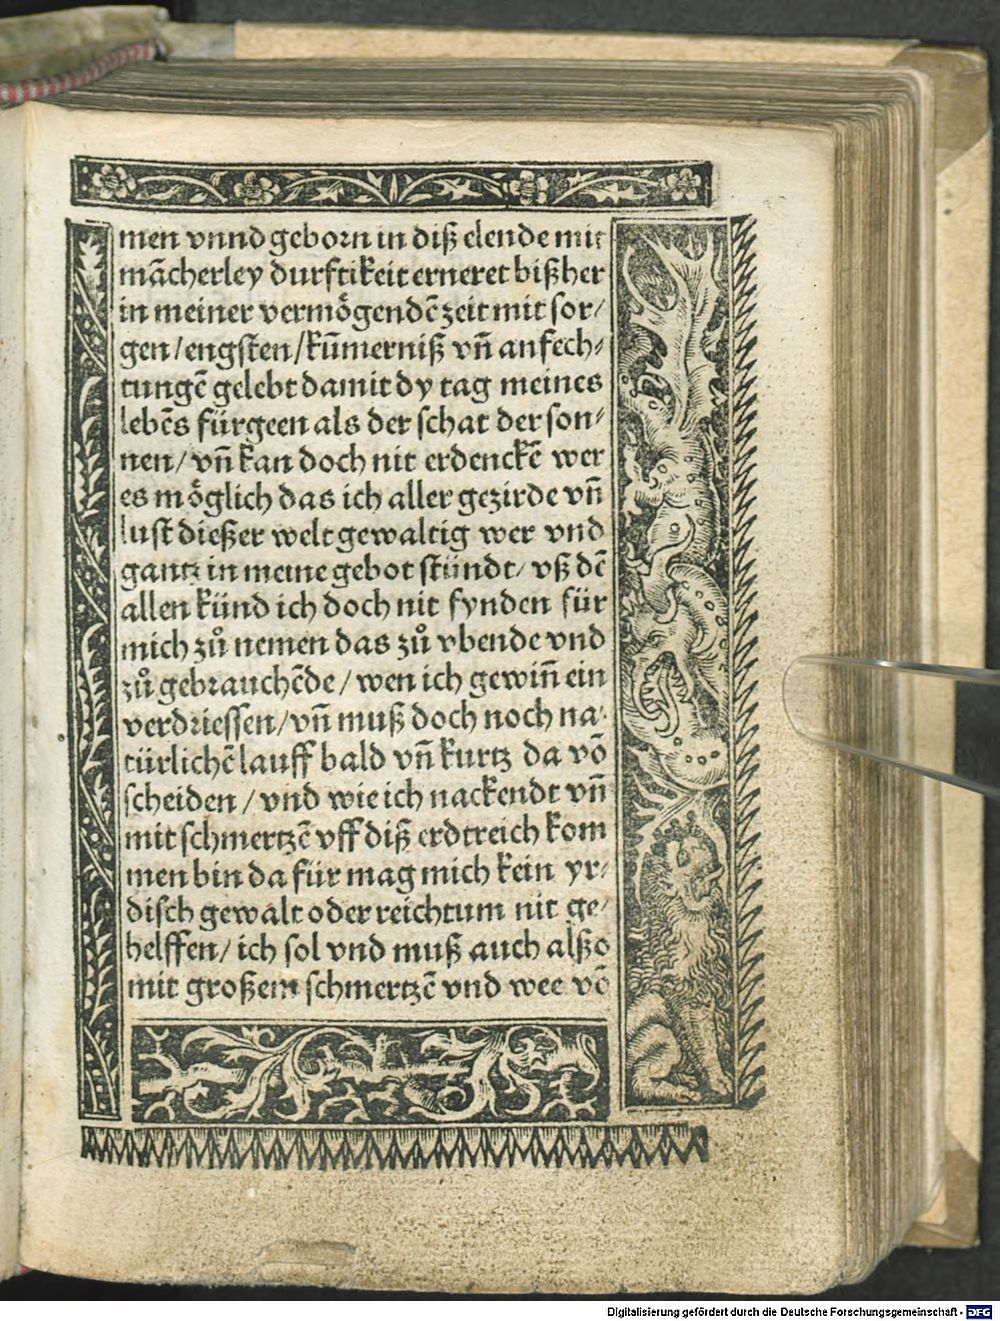 men vnnd geborn in diß elende mit
mācherley durftikeit erneret bißher
in meiner vermögendē zeit mit sor/
gen/engsten/kūmerniß vn̄ anfech⸗
tungē gelebt damit dy tag meines
lebēs fürgeen als der schat der son⸗
nen/vn̄ kan doch nit erdenckē wer
es möglich das ich aller gezirde vn̄
lust dießer welt gewaltig wer vnd
gantz in meine gebot stündt/ vß dē
allen künd ich doch nit fynden für
mich zů nemen das zů vbende vnd
zů gebrauchēde/wen ich gewin̄ ein
verdriessen/vn̄ muß doch noch na⸗
türlichē lauff bald vn̄ kurtz da vō
scheiden/vnd wie ich nackendt vn̄
mit schmertzē vff diß erdtreich kom
men bin da für mag mich kein yr⸗
disch gewalt oder reichtum nit ge⸗
helffen/ich sol vnd muß auch alßo
mit großem schmertzē vnd wee vō
Digitalisierung gefördert durch die Deutsche Forschungsgemeinschaft - DFG